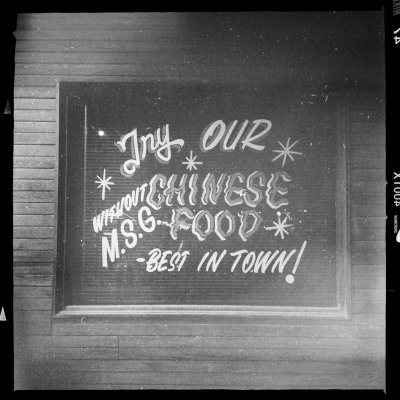 Try OUR
CHINESE
WITHOUT
M.S.G. FOOD
-BEST IN TOWN!
47
400TX